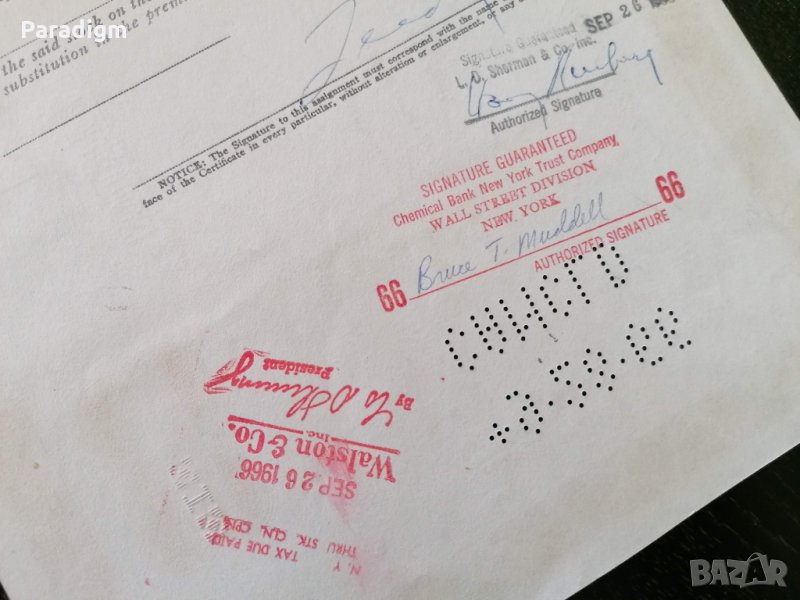 Paradigm
the said stock on the
substitution in the premi
NOTICE: The Signature to this assignment must correspond with the name
face of the Certificate in every particular, without alteration or enlargement, or any
SEP 26
Signature Guaranteed
L. D. Sherman & Co. Inc.
Authorized Signature
SIGNATURE GUARANTEED
Chemical Bank New York Trust Company
WALL STREET DIVISION
NEW YORK
66 Bruce T. Muddell 66
AUTHORIZED SIGNATURE
N. Y.
TAX DUE PAID
THRU STK. CLN. CPN.
SEP 26 1966
Walston & Co.
Inc.
By
President
BAZAR